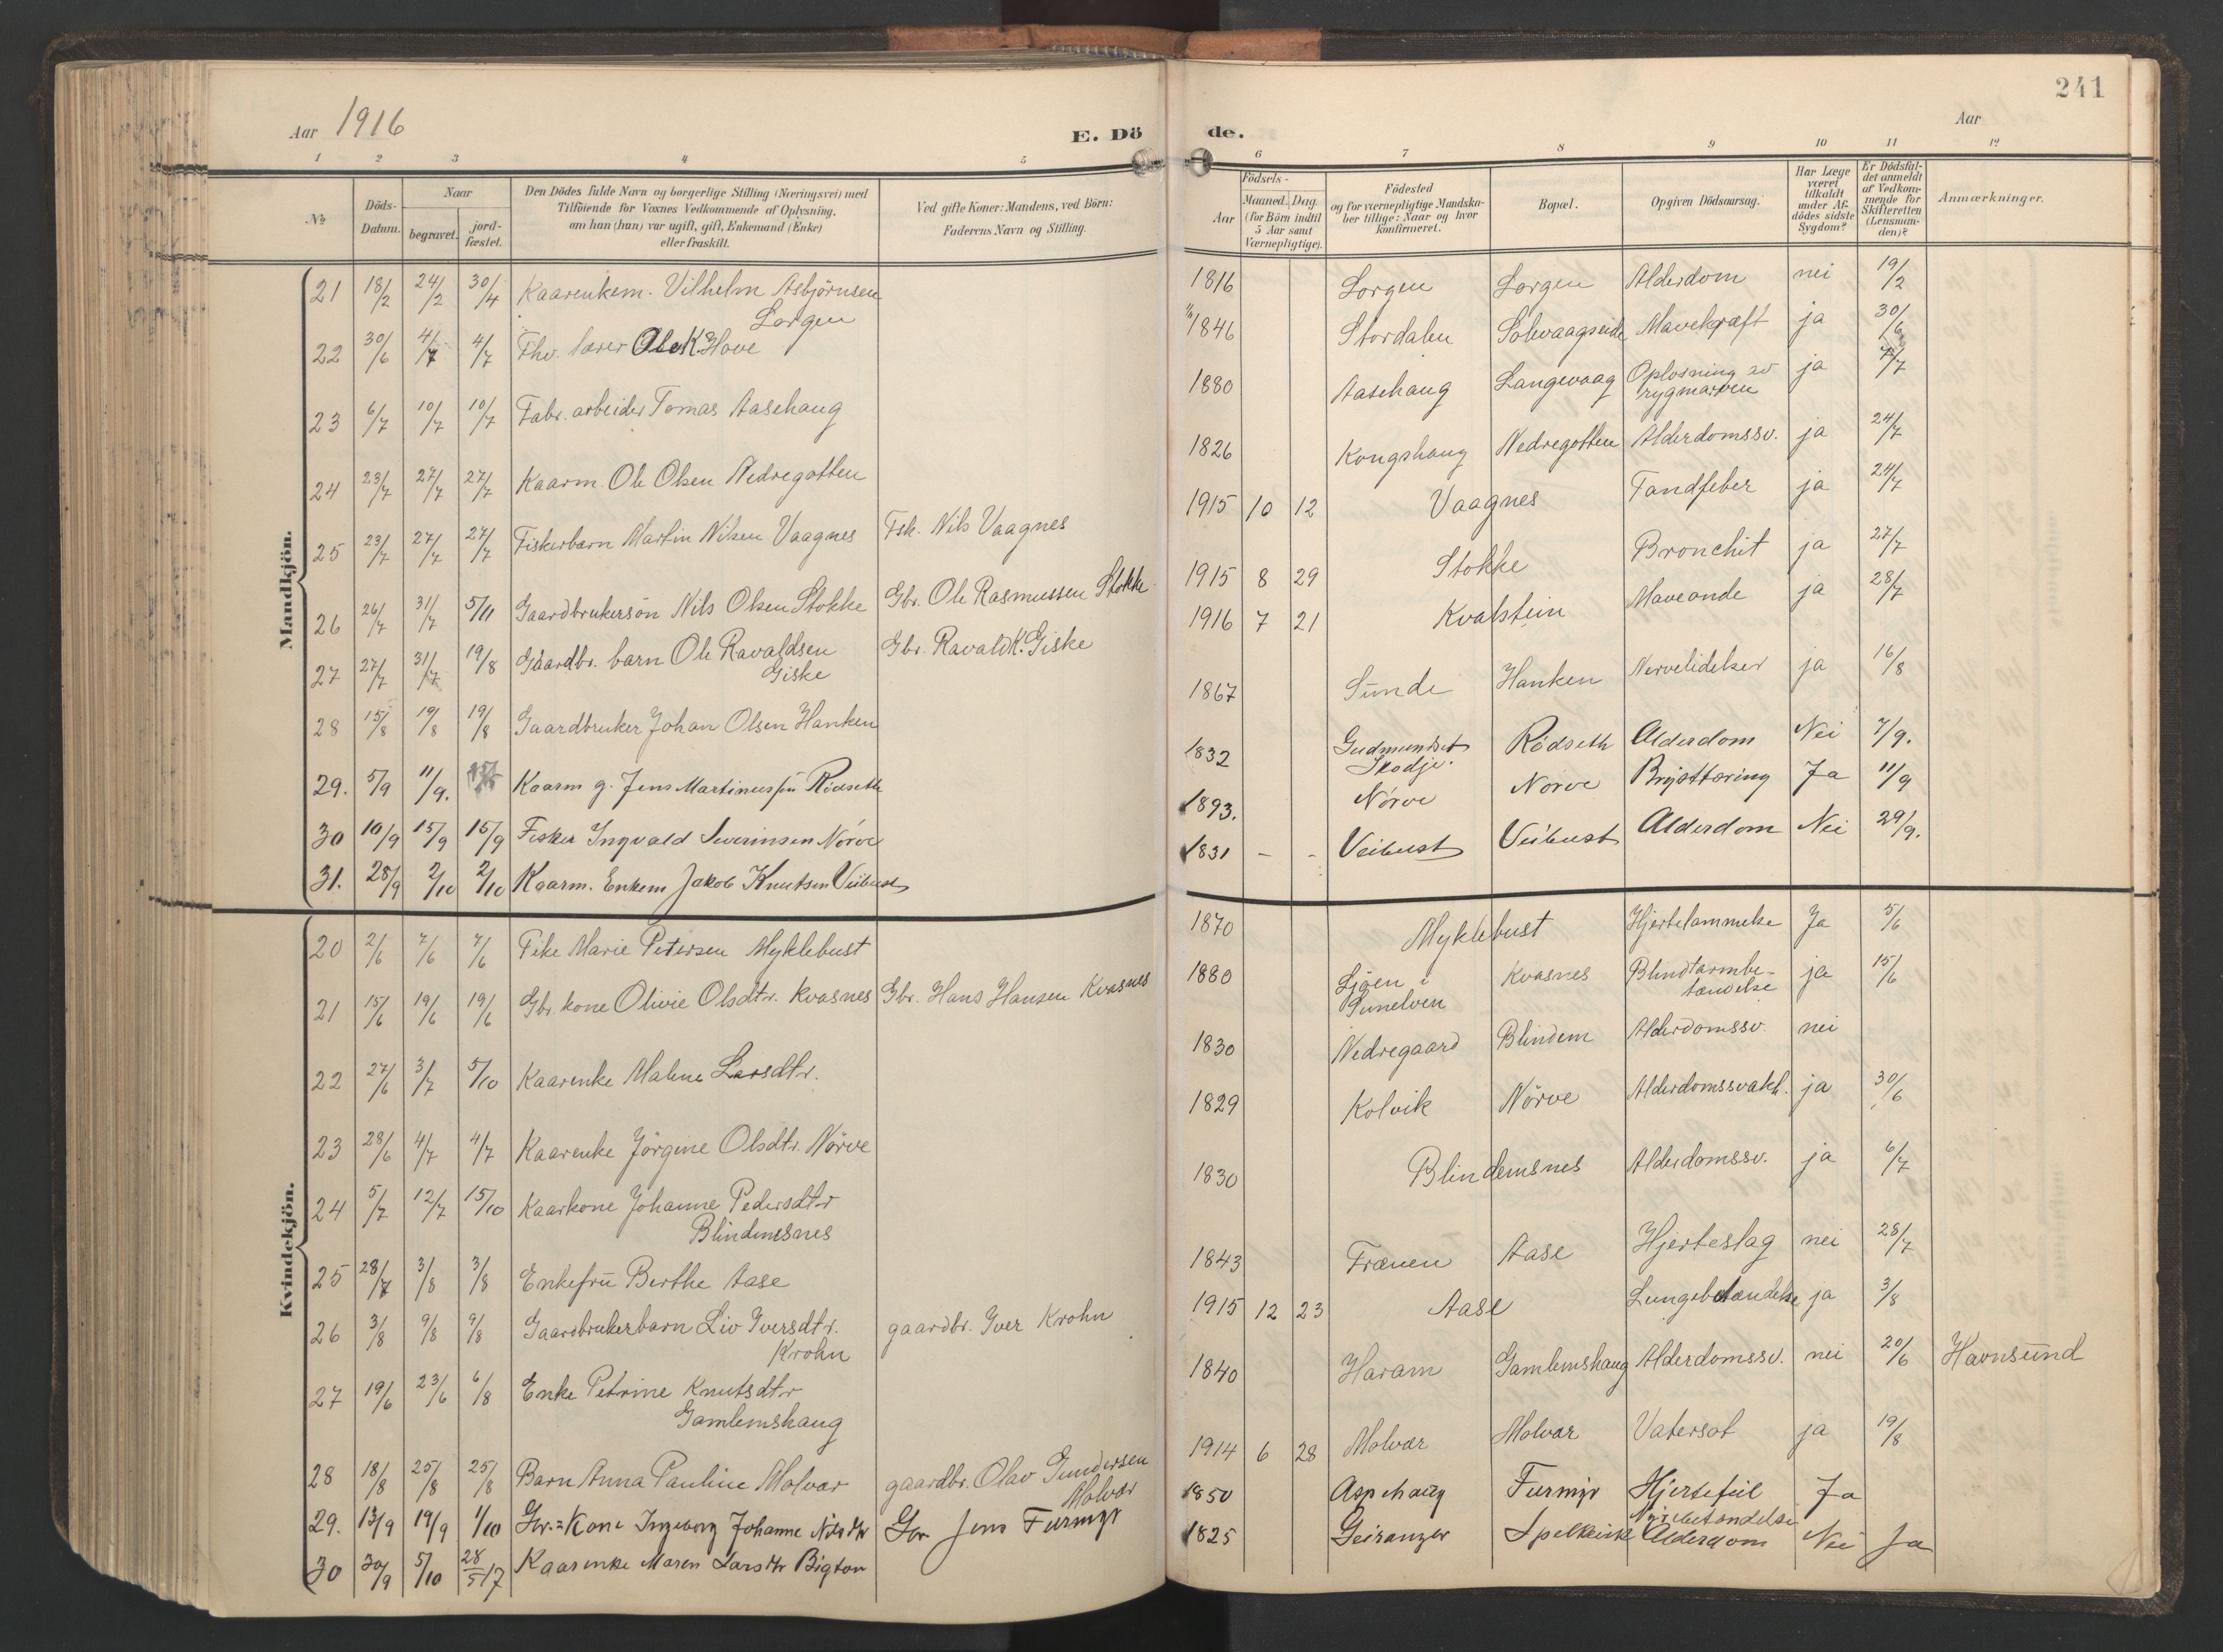 241
Aar 1916 E. Dö de. Aar
1 2 3 4 5 6 7 8 9 10 11 12
№
Döds-Datum.
Naar
begravet.
jord-fæstet.
Den Dödes fulde Navn og borgerlige Stilling (Næringsvei) med
Tilföiende for Voxnes Vedkommende af Oplysning,
om han (hun) var ugift, gift, Enkemand (Enke)
eller fraskilt.
Ved gifte Koner: Mandens, ved Börn:
Faderens Navn og Stilling.
Födsels-
Aar
Maaned. Dag.
(for Börn indtil
5 Aar samt
Værnepligtige).
Födested
og for værnepligtige Mandska-
ber tillige: Naar og hvor
konfirmeret.
Bopæl.
Opgiven Dödsaarsag.
Har Læge
været
tilkaldt
under Af-
dödes sidste
Sygdom?
Er Dödsfal-
det anmeldt
af Vedkom-
mende for
Skifteretten
(Lensman-
den)?
Anmærkninger.
Mandkjön.
21 18/2 24/2 30/4 Kaarenkem. Vilhelm Asbjörnsen 1816 Lorgen Lorgen Alderdom nei 19/2
Lorgen
22 30/6 4/7 4/7 Fhv. lærer Ole K. Hove 1846 Stordalen Solevaagseide Mavekræft ja 30/6
23 6/7 10/7 10/7 Fabr. arbeider Tomas Aasehaug 1880 Aasehaug Langevaag Oplösning av ja 7/7
rygmarven
24 23/7 27/7 27/7 Kaarm. Ole Olsen Nedregotten 1826 Kongshaug Nedregotten Alderdomssv. ja 24/7
25 23/7 27/7 27/7 Fiskerbarn Martin Nilsen Vaagnes Fsk. Nils Vaagnes 1915 10 12 Vaagnes Tandfeber ja 24/7
26 26/7 31/7 5/11 Gaardbrukersön Nils Olsen Stokke Gbr. Ole Rasmussen Stokke 1915 8 29 Stokke Bronchit ja 27/7
27 27/7 31/7 19/8 Gaardbr. barn Ole Ravaldsen Gbr. Ravald K. Giske 1916 7 21 Kvalstein Maveonde ja 28/7
Giske
28 15/8 19/8 19/8 Gaardbruker Johan Olsen Hanken 1867 Sunde Hanken Nervelidelser ja 16/8
29. 5/9 11/9. Kaarm g. Jens Martinussen Rödseth 1832 Gudmundset Rödseth Alderdom Nei 7/9.
Skodje.
30 10/9 15/9 15/9 Fisker Ingvald Severinsen Nörve 1893. Nörve Nörve Brysttæring Ja 11/9
31. 28/9 2/10 2/10 Kaarm. Enkem Jakob Knutsen Veibust 1831 - - Veibust Veibust Alderdom Nei 29/9.
Kvindekjön.
20 2/6 7/6 7/6 Pike Marie Petersen Myklebust 1870 Myklebust Hjertelammelse Ja 5/6
21 15/6 19/6 19/6 Gbr. kone Olivie Olsdtr. Kvasnes Gbr. Hans Hansen Kvasnes 1880 Ljöen i Kvasnes Blindtarmbe- ja 15/6
Sunelven tændelse
22 27/6 3/7 5/10 Kaarenke Malene Larsdtr. 1830 Nedregaard Blindem Alderdomssv. nei
23 28/6 4/7 4/7 Kaarenke Jörgine Olsdtr. Nörve 1829 Kolvik Nörve Alderdomssvakh. ja 30/6
24 5/7 12/7 15/10 Kaarkone Johanne Pedersdtr 1830 Blindemsnes Alderdomssv. ja 6/7
Blindemsnes
25 28/7 3/8 3/8 Enkefru Berthe Aase 1843 Frænen Aase Hjerteslag nei 28/7
26 3/8 9/8 9/8 Gaardbrukerbarn Liv Iversdtr. gaardbr. Iver Krohn 1915 12 23 Aase Lungebetændelse ja 3/8
Krohn
27 19/6 23/6 6/8 Enke Petrine Knutsdtr 1840 Haram Gamlemshaug Alderdomssv. nei 20/6 Havnsund
Gamlemshaug
28 18/8 25/8 25/8 Barn Anna Pauline Molvær gaardbr. Olav Gundersen 1914 6 28 Molvær Molvær Vatersot ja 19/8
Molvær
29. 13/9 19/9 1/10 Gr.=Kone Ingeborg Johanne Nilsdtr Gbr Jens Furmyr 1850 Aspehaug Furmyr Hjertefeil Ja
Nyrebetændelse
30 30/9 5/10 28/5 17 Kaarenke Maren Larsdtr Bigton 1825 Geiranger Spelkavik Alderdom Nei Ja